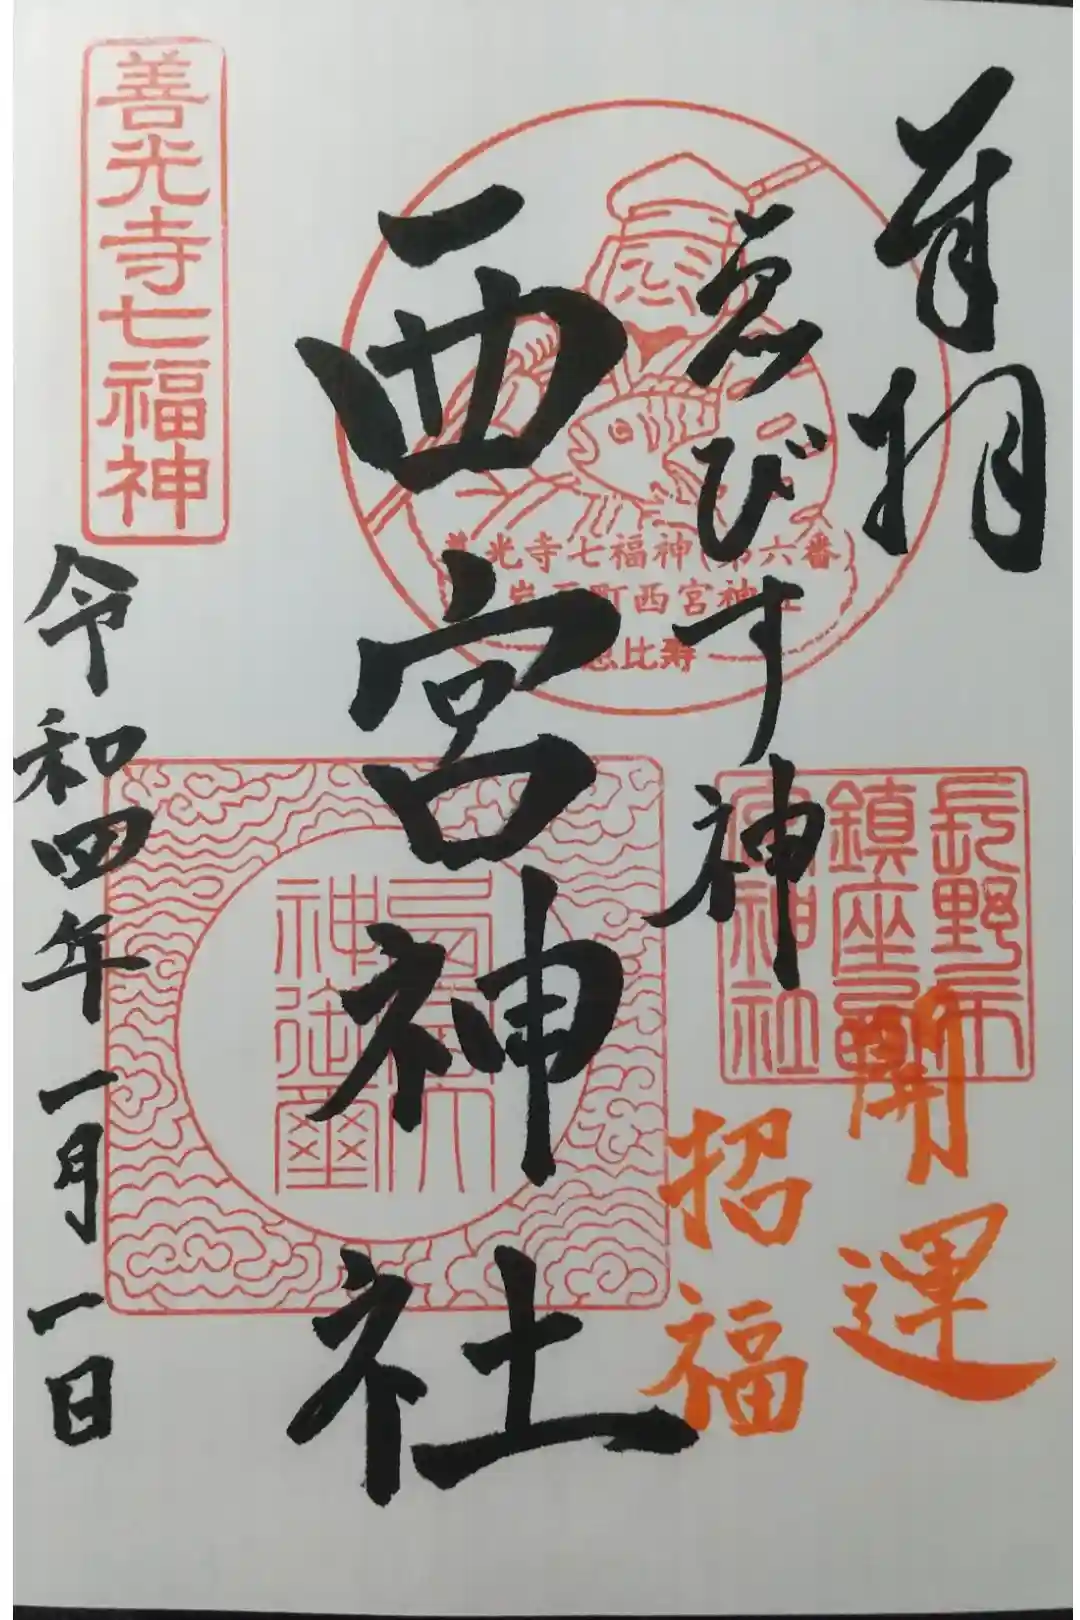 奉拝
ゑびす神
西宮神社
令和四年一月一日
開運
招福
善光寺七福神
善光寺七福神(第六番)
岩石町西宮神社
恵比寿
長野市
鎮座西
宮神社